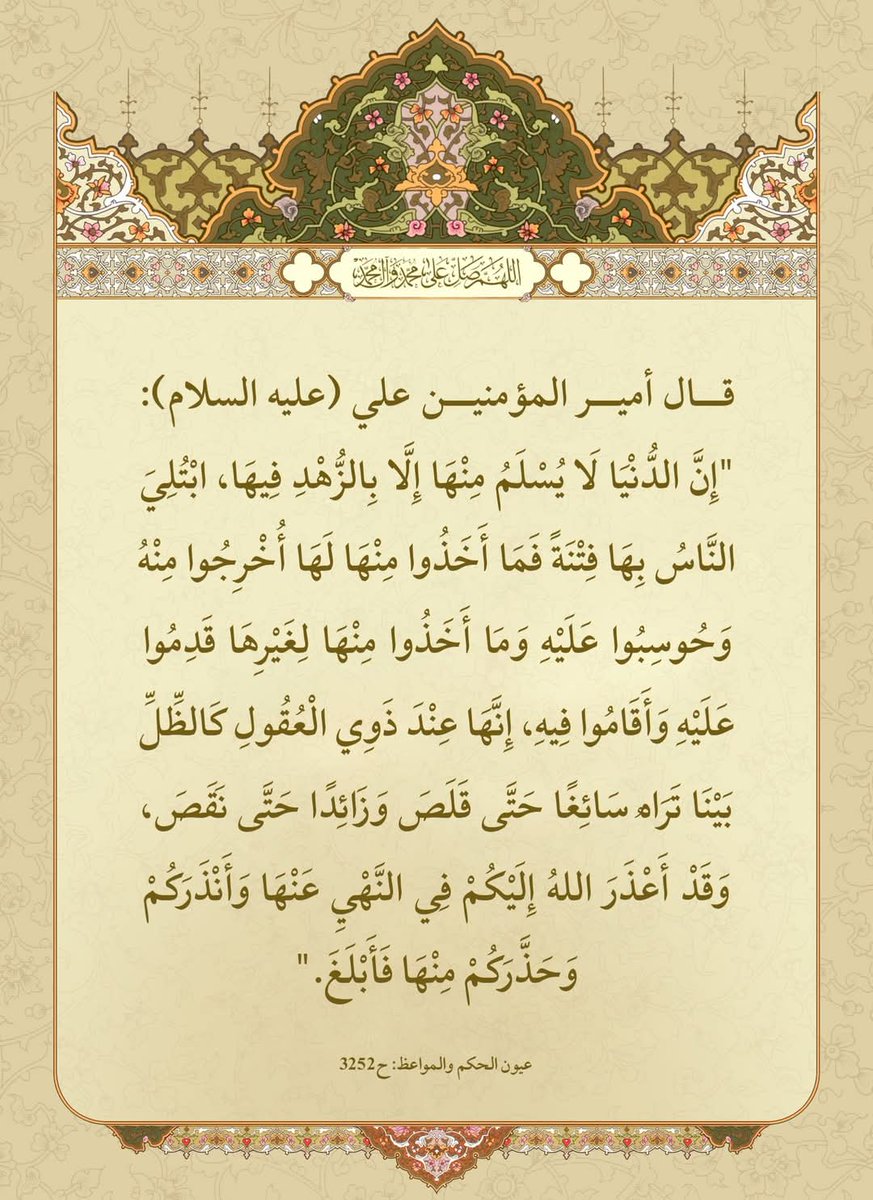 اللهم صل على محمد وآل محمد
قال أمير المؤمنين علي (عليه السلام):
"إِنَّ الدُّنْيَا لَا يُسْلَمُ مِنْهَا إِلَّا بِالزُّهْدِ فِيهَا، ابْتُلِيَ
النَّاسُ بِهَا فِتْنَةً فَمَا أَخَذُوا مِنْهَا لَهَا أُخْرِجُوا مِنْهُ
وَحُوسِبُوا عَلَيْهِ وَمَا أَخَذُوا مِنْهَا لِغَيْرِهَا قَدِمُوا
عَلَيْهِ وَأَقَامُوا فِيهِ، إِنَّهَا عِنْدَ ذَوِي الْعُقُولِ كَالظِّلِّ
بَيْنَا تَرَاه سَائِغًا حَتَّى قَلَصَ وَزَائِدًا حَتَّى نَقَصَ،
وَقَدْ أَعْذَرَ اللهُ إِلَيْكُمْ فِي النَّهْيِ عَنْهَا وَأَنْذَرَكُمْ
وَحَذَّرَكُمْ مِنْهَا فَأَبْلَغَ."
عيون الحكم والمواعظ: ح3252